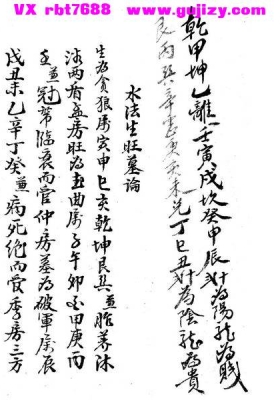 VX rbt7688 www.gujizy.com
乾甲坤乙離壬寅戌坎癸申辰計為陽龍為賤
艮丙巽辛震庚亥未兌丁巳丑計為陰龍為貴
水法生旺墓論
生為貪狼屬寅申巳亥乾坤艮巽並胎養沐
浴而看孟房旺為武曲屬子午卯酉甲庚丙
壬並冠帶臨衰而管仲房墓為破軍屬辰
戌丑未乙辛丁癸並病死絕而管季房三方